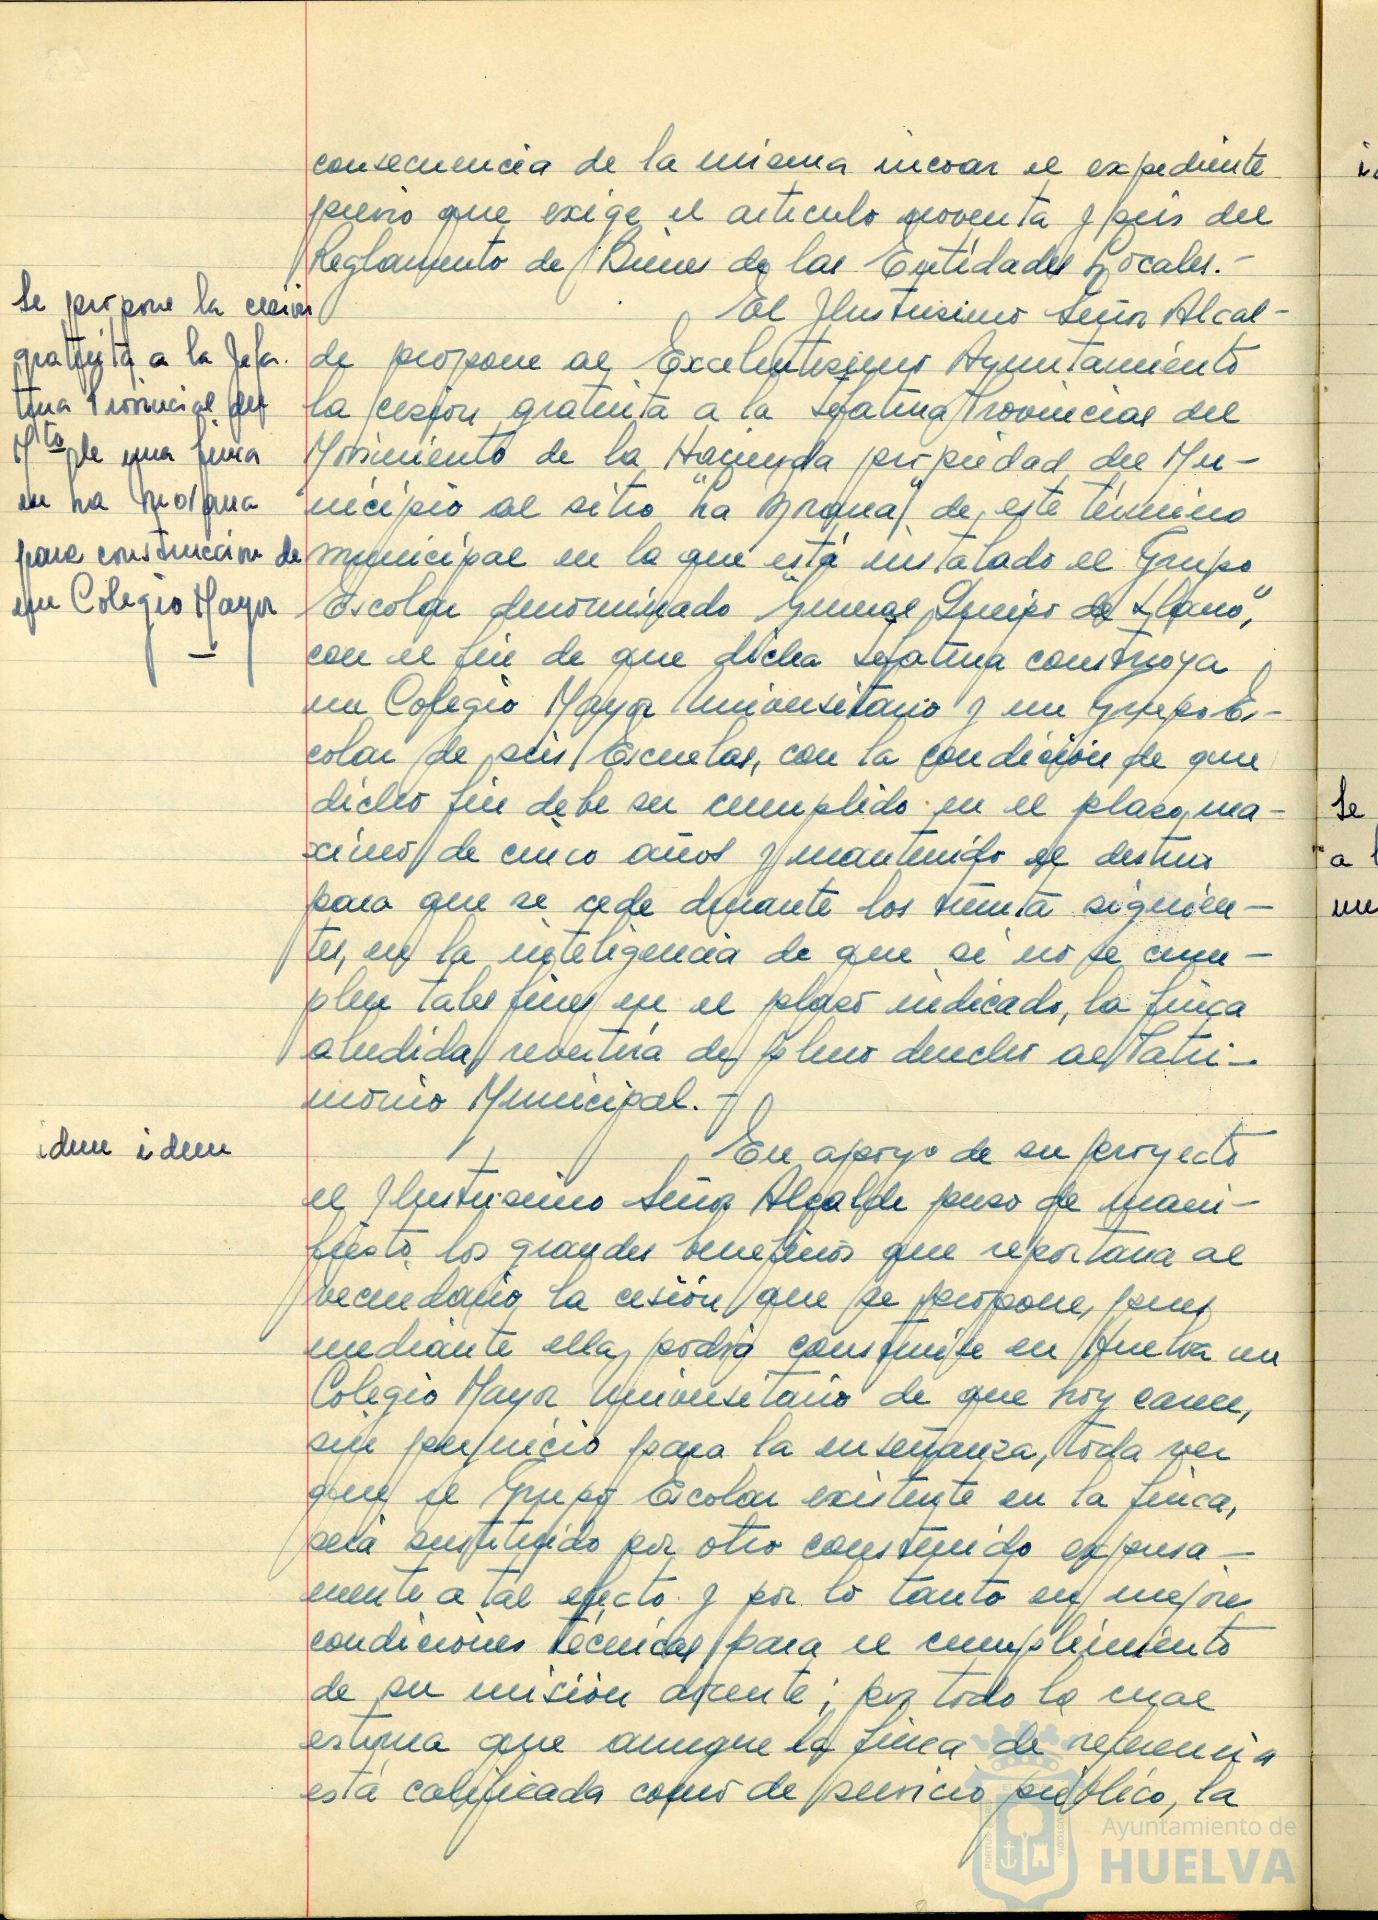 consecuencia de la misma incoar el expediente
previo que exige el artículo noventa y seis del
Reglamento de Bienes de las Entidades Locales.-
Se propone la cesión
gratuita a la Jefa-
tura Provincial del
Mto de una finca
en La
para construcción de
un Colegio Mayor
El Ilustrisimo Señor Alcal-
de propone al Excelentisimo Ayuntamiento
la cesión gratuita a la Jefatura Provincial del
Movimiento de la Hacienda propiedad del Mu-
nicipio al sitio "La de este término
municipal en la que está instalado el Grupo
Escolar denominado "General Queipo de Llano",
con el fin de que dicha Jefatura construya
un Colegio Mayor Universitario y un Grupo Es-
colar de seis Escuelas, con la condición de que
dicho fin debe ser cumplido en el plazo ma-
ximo de cinco años y mantenido el destino
para que se cede durante los treinta siguien-
tes, en la inteligencia de que si no se cum-
plen tales fines en el plazo indicado, la finca
aludida revertirá de pleno derecho al Patri-
monio Municipal.-
idem idem
En apoyo de su proyecto
el Ilustrisimo Señor Alcalde puso de mani-
fiesto los grandes beneficios que reportaria al
vecindario la cesión que se propone, pues
mediante ella podrá construirse en Huelva un
Colegio Mayor Universitario de que hoy carece,
sin perjuicio para la enseñanza, toda vez
que el Grupo Escolar existente en la finca,
será sustituido por otro construido expresa-
mente a tal efecto y por lo tanto en mejores
condiciones técnicas para el cumplimiento
de su misión docente; por todo lo cual
estima que aunque la finca de referencia
está calificada como de servicio público, la
Se
a l
un
Ayuntamiento de
HUELVA